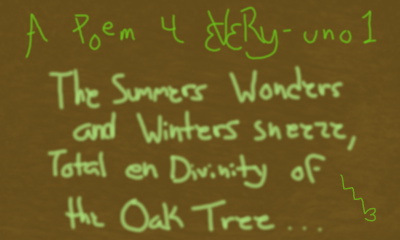 A Poem 4 EVERy-uno1
The Summers Wonders
and Winters sneeze,
Total en Divinity of
the Oak Tree...
3